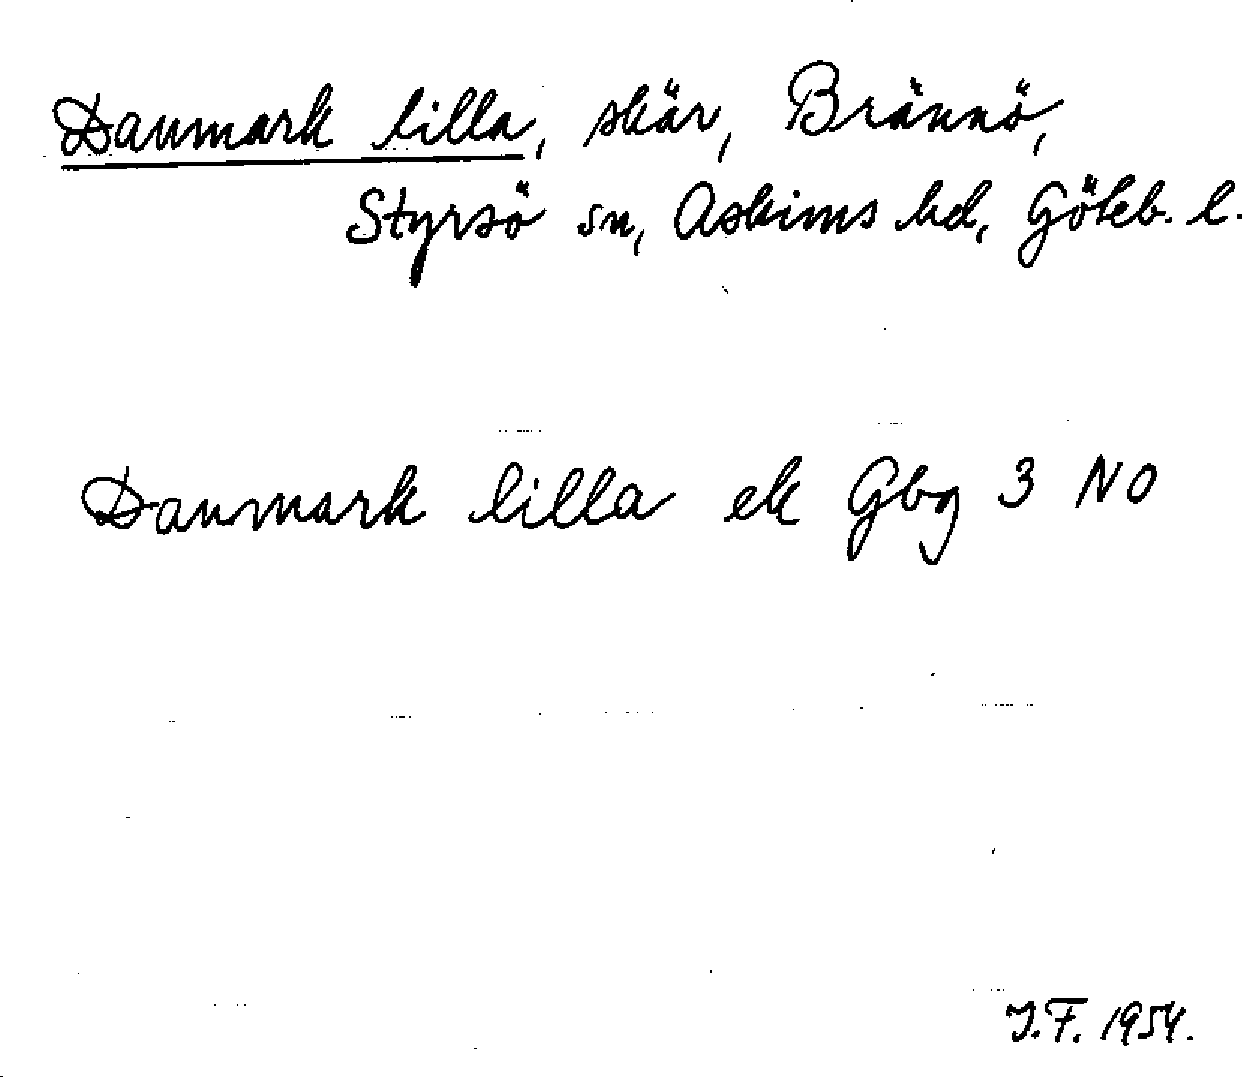 Danmark lilla, skär, Brännö,
Styrsö sn, Askims hd, Göteb. l.
Danmark lilla ek Gbg 3 NO
I.F. 1954.